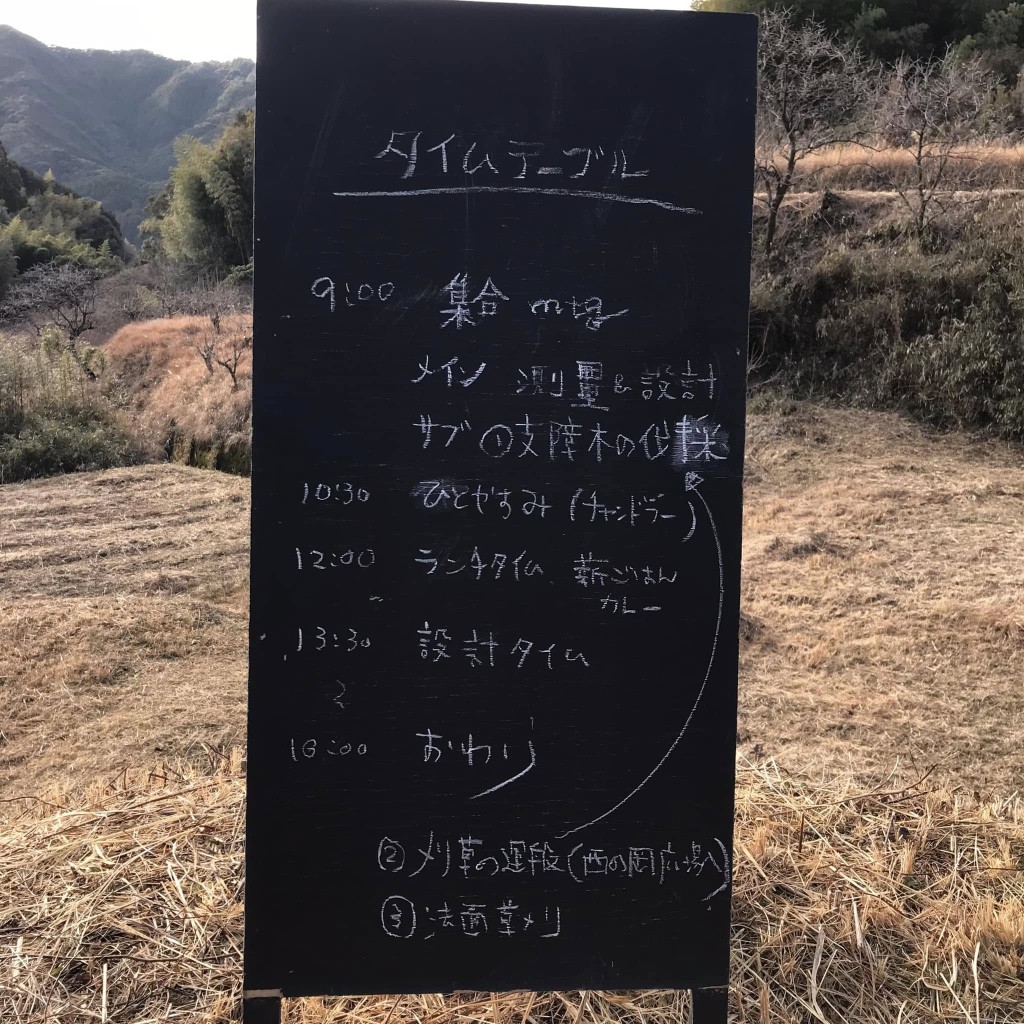 タイムテーブル
9:00 集合 mtg
メイン 測量&設計
サブ ①支障木の伐採
10:30 ひとやすみ (チャンドラー)
12:00 ランチタイム 薪ごはん
カレー
13:30 設計タイム
〜
16:00 おわり
②刈草の運搬(西の岡広場へ)
③法面草刈り